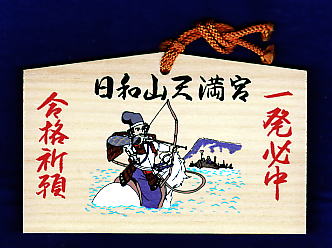 日和山天満宮
一発必中
合格祈願